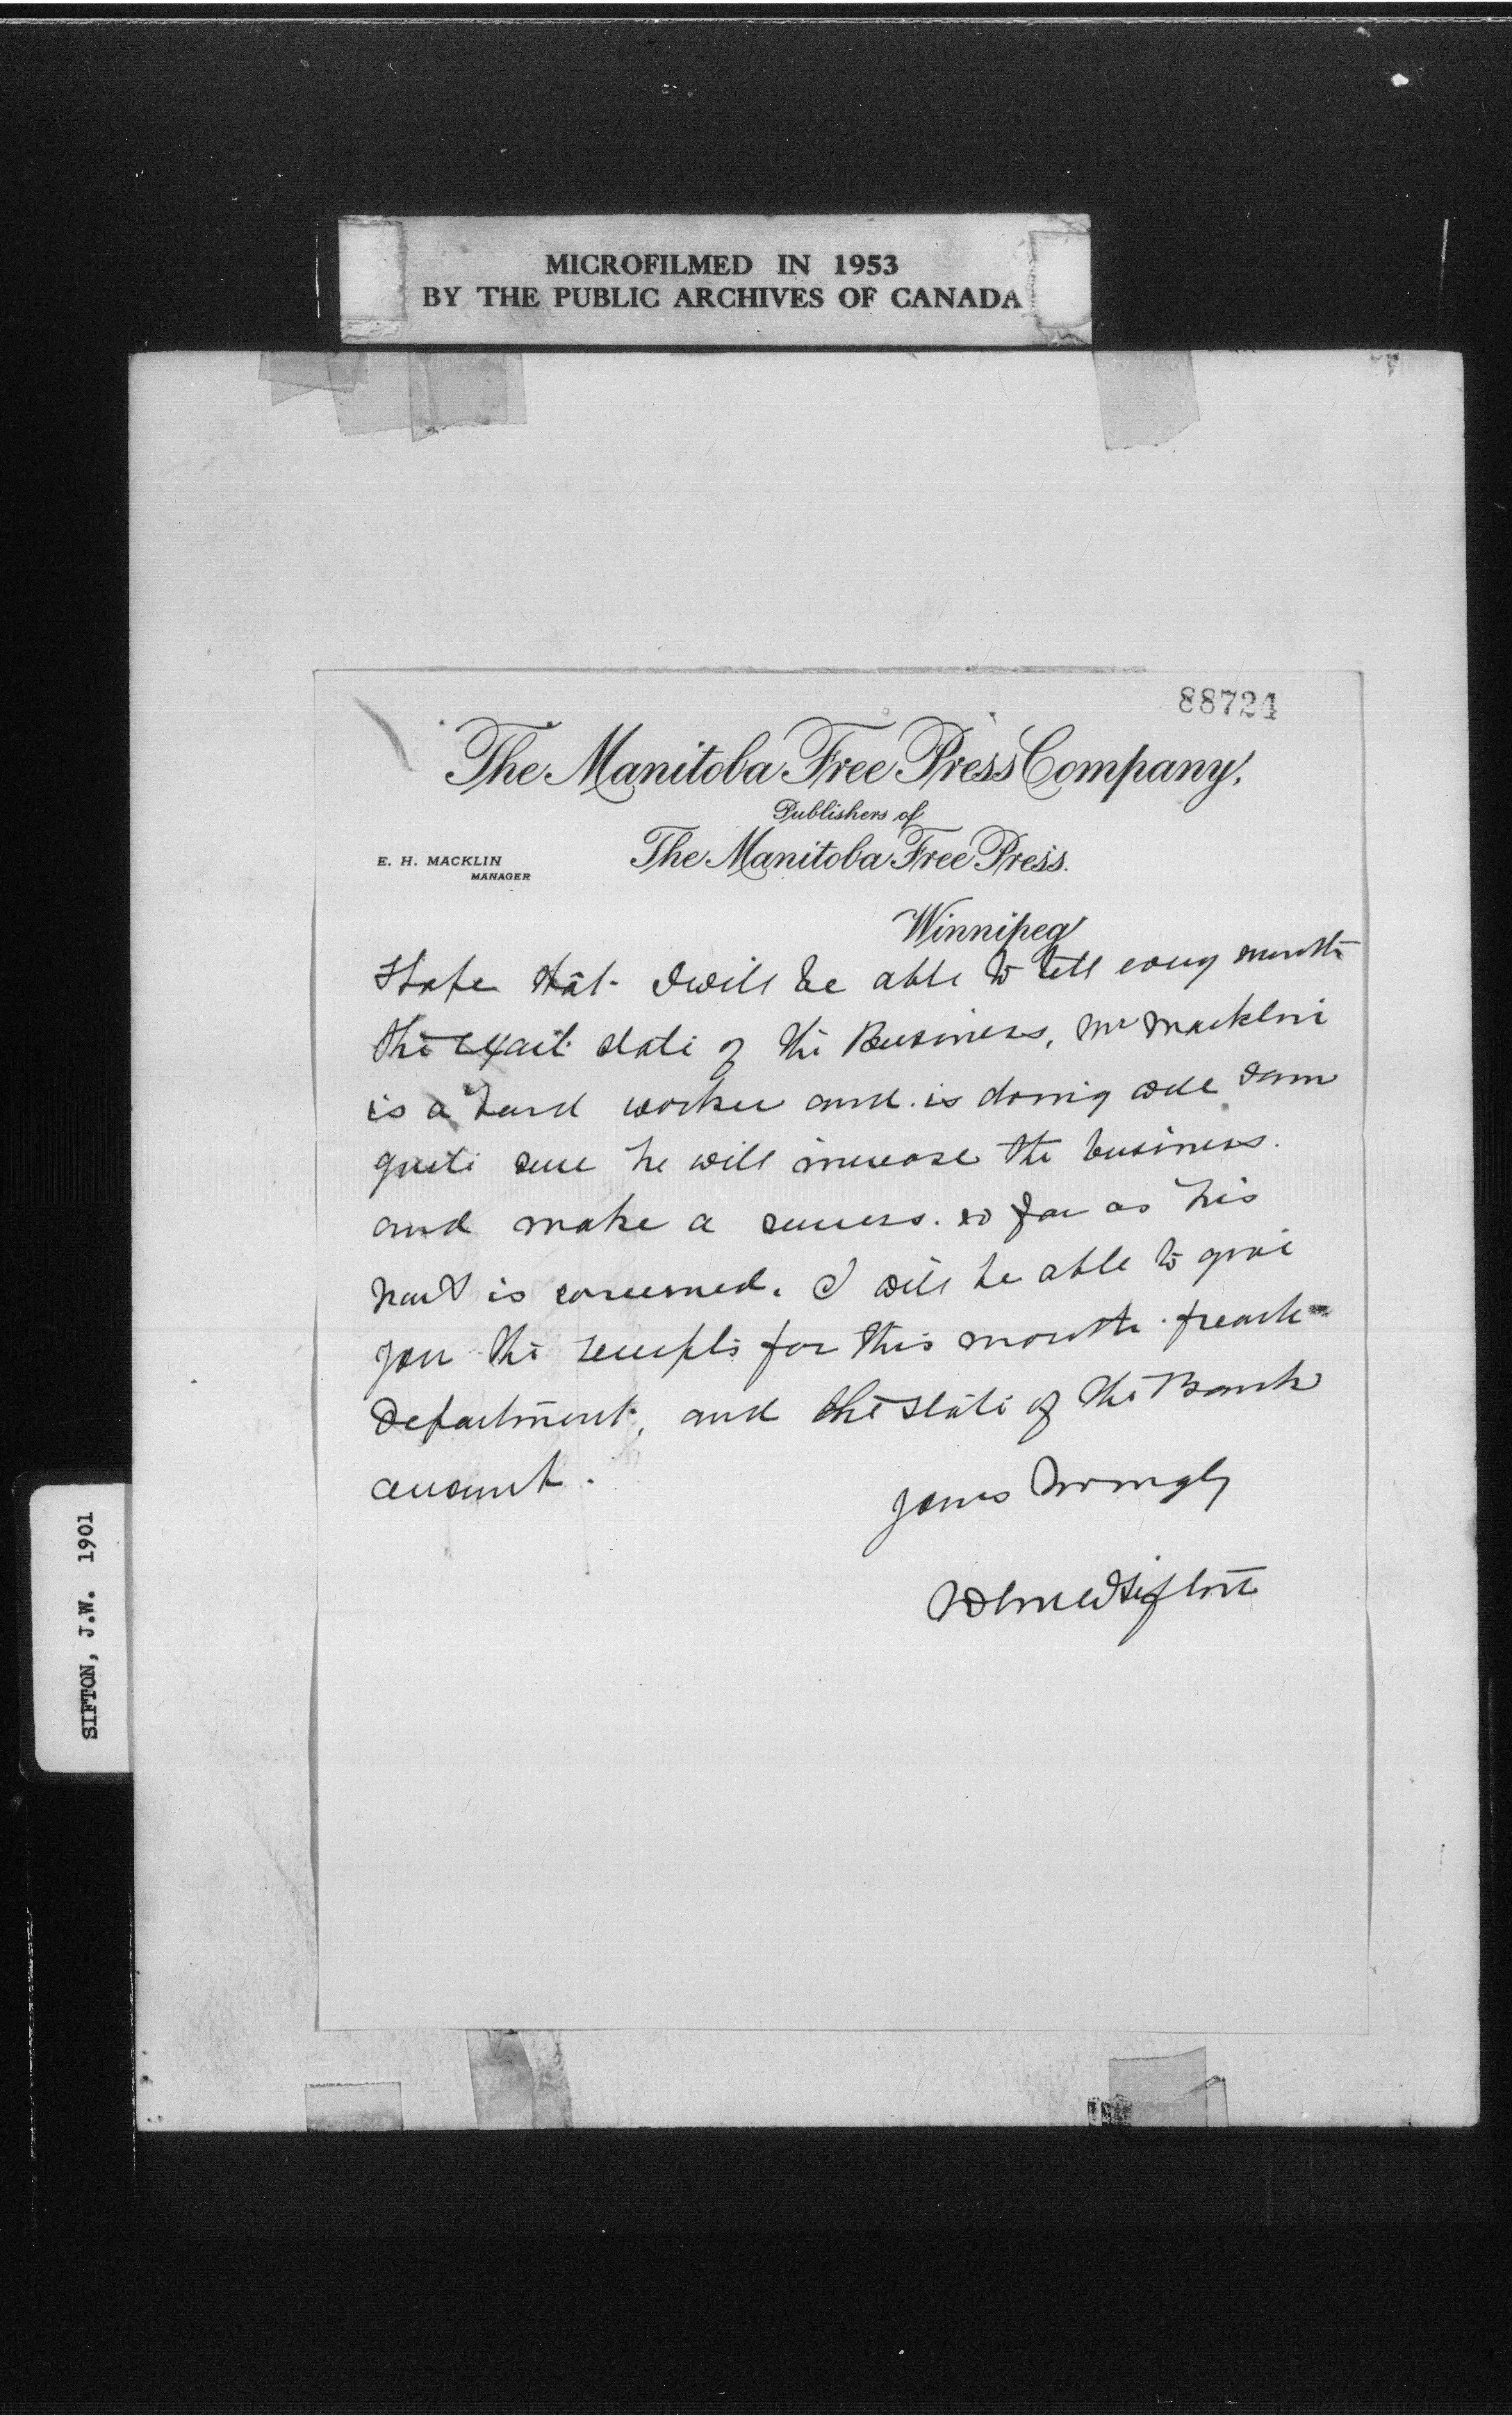 MICROFILMED IN 1953
BY THE PUBLIC ARCHIVES OF CANADA
88724
The Manitoba Free Press Company,
Publishers of
The Manitoba Free Press.
E. H. MACKLIN
MANAGER
Winnipeg
that I will be able to tell every month
the exact state of the Business, Mr Macklin
is a hard worker and is doing well I am
quite sure he will increase the business.
and make a success. so far as his
part is concerned. I will be able to give
you the receipts for this month. each
Department, and the state of the Bank
account.
yours lovingly
John W Sifton
SIFTON, J.W. 1901